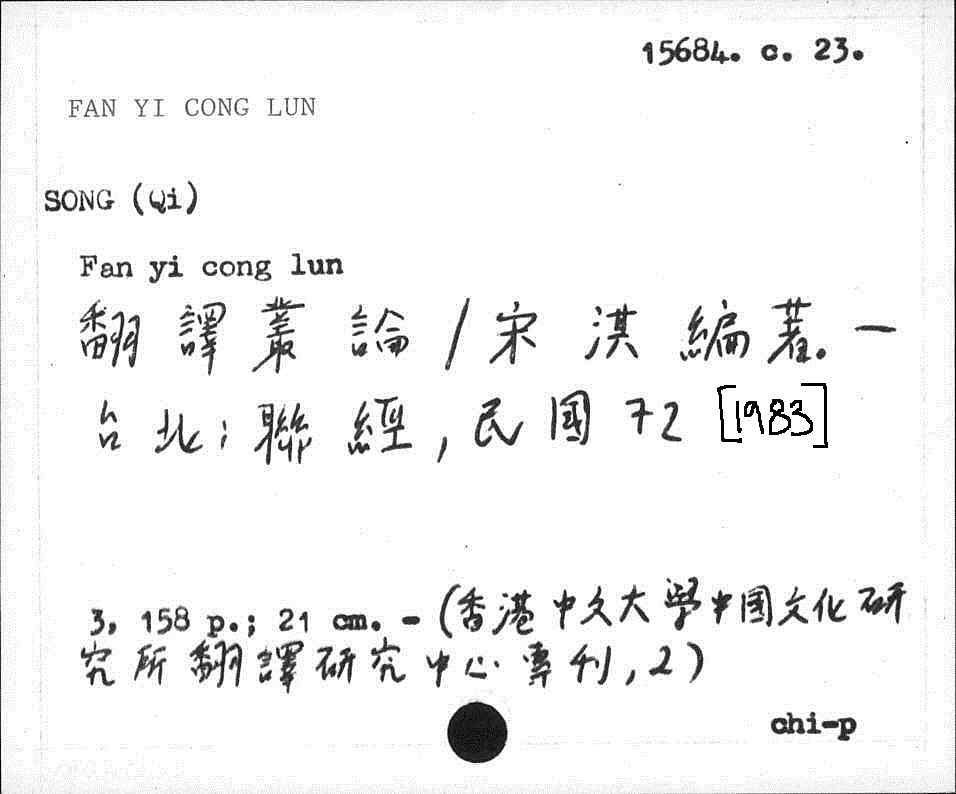 15684. c. 23.
FAN YI CONG LUN
SONG (Qi)
Fan yi cong lun
翻譯叢論 / 宋淇編著. —
台北: 聯經, 民國72 [1983]
3, 158 p.; 21 cm. - (香港中文大學中国文化研
究所翻譯研究中心專刊, 2)
chi-p